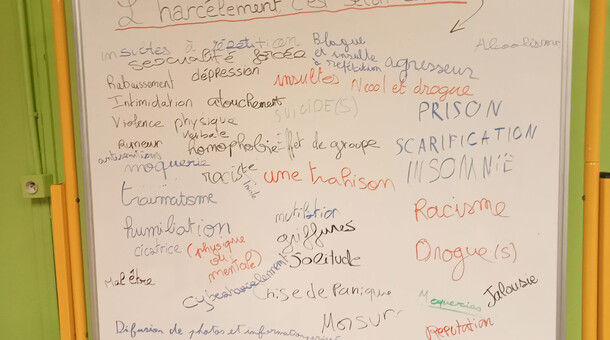 L'harcèlement c'est selon
insultes à répétition
sexualité forcée
Blague et insulte à répétition
agresseur
Alcoolisme
Rabaissement
dépression
insultes
Alcool et drogue
Intimidation
atouchement
SUICIDE(S)
PRISON
Violence physique
verbale
Rumeur
homophobie
Effet de groupe
SCARIFICATION
antisémitisme
moquerie
raciste
une trahison
INSOMNIE
traumatisme
mutilation
Racisme
humiliation
griffures
cicatrice (physique ou mentale)
solitude
Drogue(s)
Mal être
cyberharcèlement
Chise de Panique
Moqueries
Jalousie
Difusion de photos et information
Morsur
Reputation